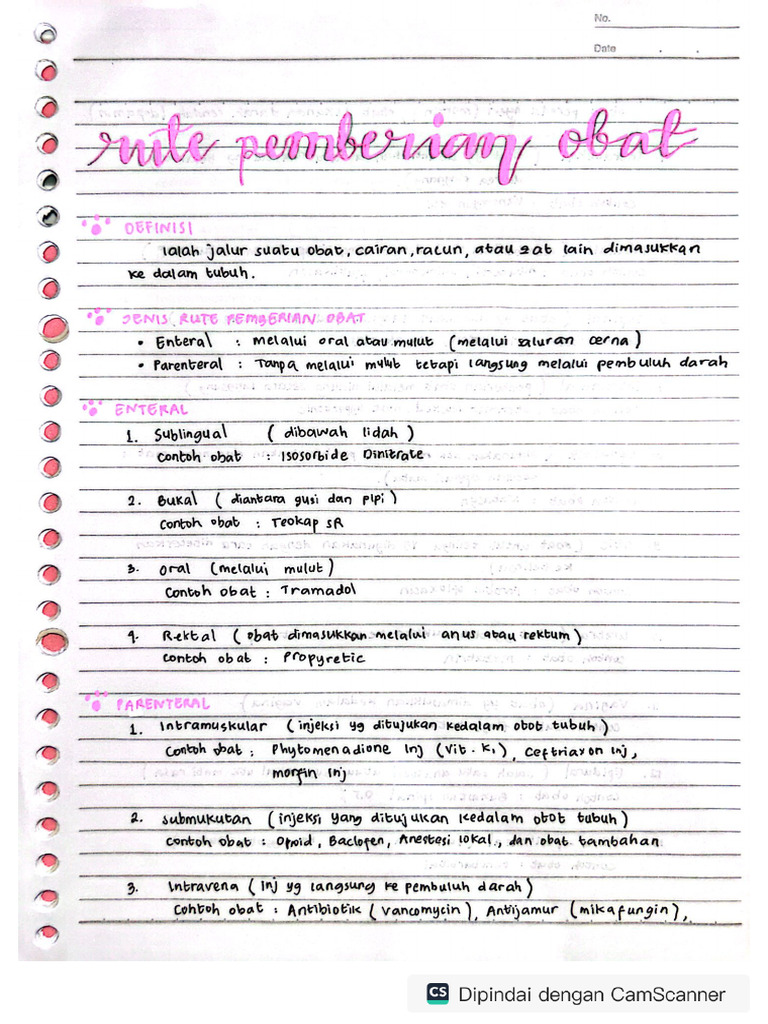 No.
Date
rute pemberian obat
DEFINISI
Ialah jalur suatu obat, cairan, racun, atau zat lain dimasukkan
ke dalam tubuh.
JENIS RUTE PEMBERIAN OBAT
• Enteral : melalui oral atau mulut (melalui saluran cerna)
• Parenteral : Tanpa melalui mulut tetapi langsung melalui pembuluh darah
ENTERAL
1. Sublingual (dibawah lidah)
Contoh obat : Isosorbide Dinitrate
2. Bukal (diantara gusi dan pipi)
Contoh obat : Teokap SR
3. Oral (melalui mulut)
Contoh obat : Tramadol
4. Rektal (obat dimasukkan melalui anus atau rektum)
Contoh obat : Propyretic
PARENTERAL
1. Intramuskular (injeksi yg ditujukan kedalam obot tubuh)
Contoh obat : Phytomenadione Inj (Vit. K1), Ceftriaxon inj,
morfin inj
2. submukutan (injeksi yang ditujukan kedalam otot tubuh)
Contoh obat : Opioid, Baclofen, Anestesi lokal., dan obat tambahan
3. Intravena (inj yg langsung ke pembuluh darah)
Contoh obat : Antibiotik (vancomycin), Antijamur (mikafungin),
CS Dipindai dengan CamScanner